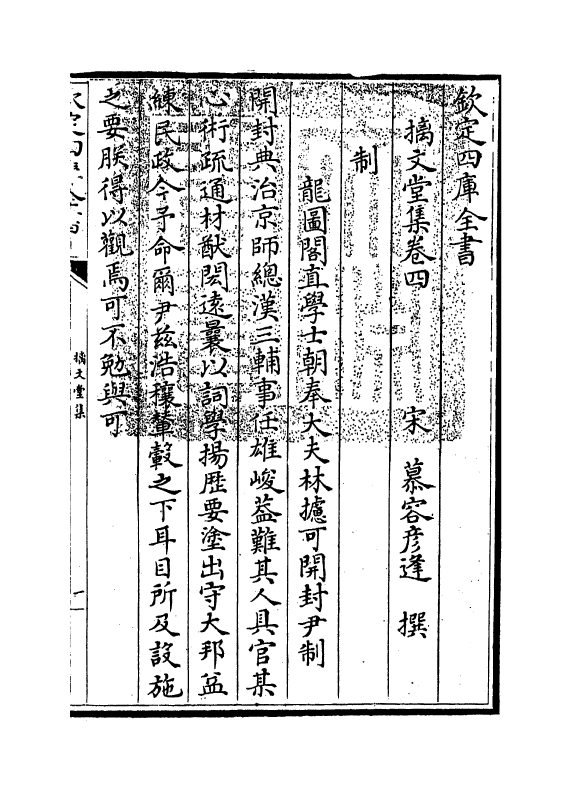 欽定四庫全書
摛文堂集卷四
宋 慕容彦逢 撰
制
龍圖閣直學士朝奉大夫林攄可開封尹制
開封典治京師總漢三輔事任雄峻葢難其人具官某
心術疏通材猷閎遠曩以詞學揚歴要塗出守大邦益
練民政今予命爾尹兹浩穰輦轂之下耳目所及設施
之要朕得以觀焉可不勉與可
摛文堂集
一